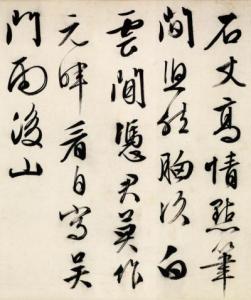 石丈高情點筆
間坦然胸次白
雲間憑君莫作
元暉看自寫吳
門雨後山